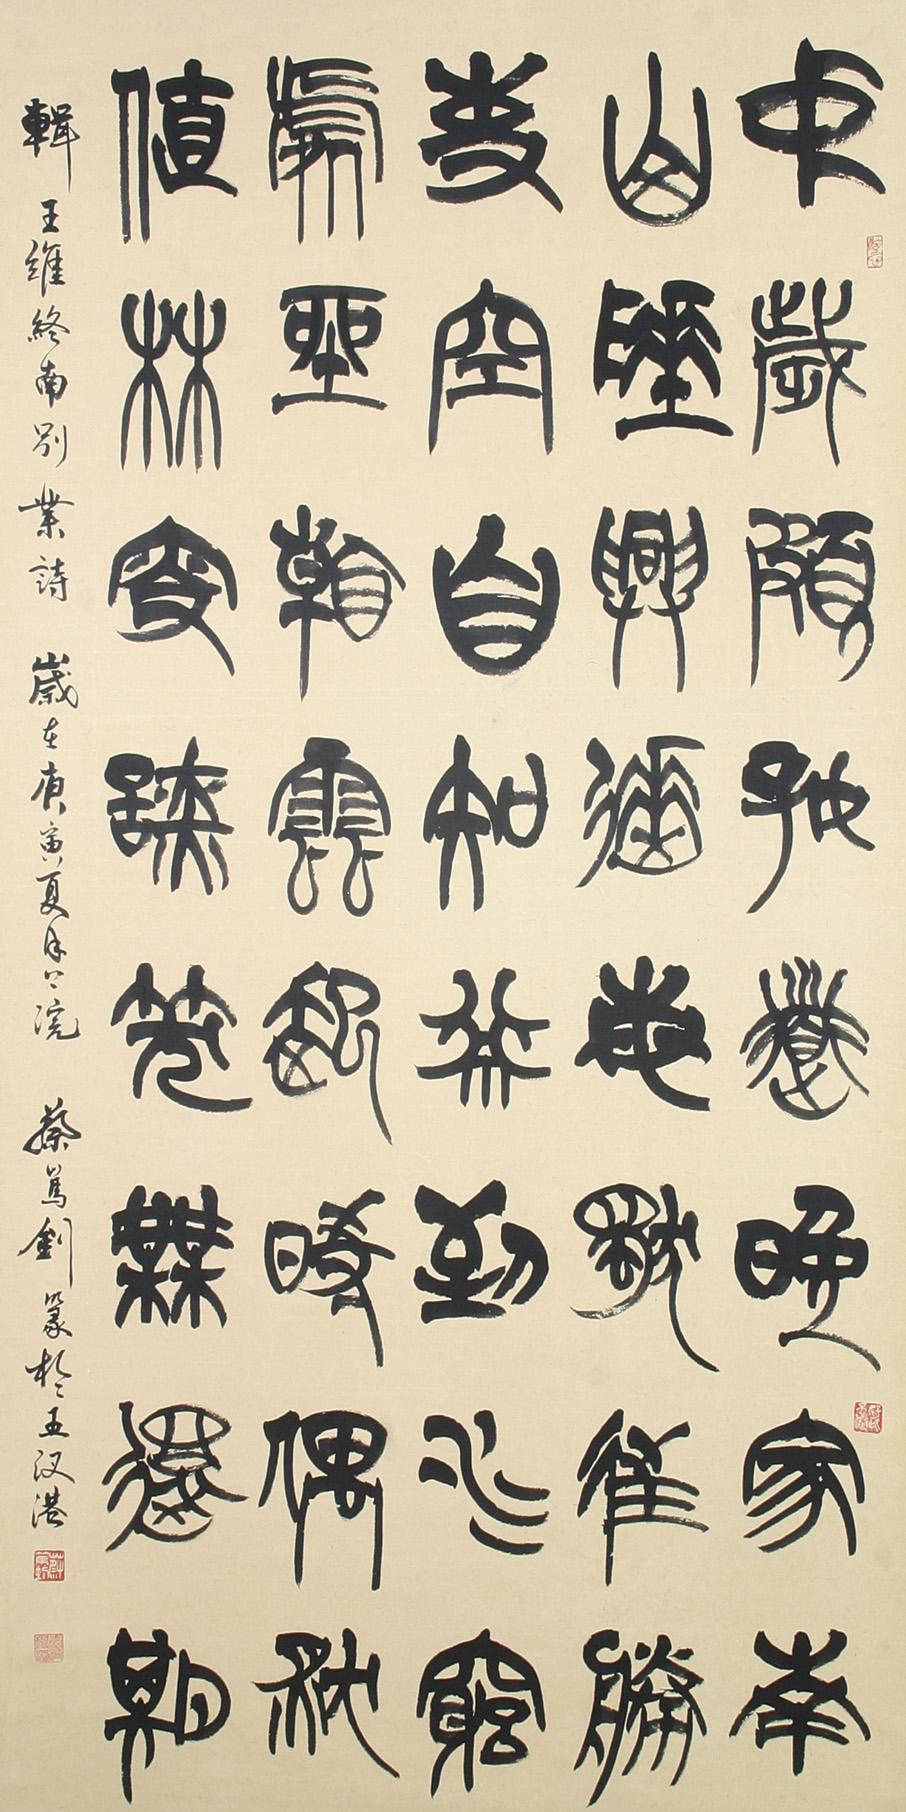 中歲頗好道晚家南
山陲興來每獨往勝
事空自知行到水窮
處坐看雲起時偶然
值林叟談笑無還期
輯王維終南別業詩 歲在庚寅夏月上浣 蔡篤釗篆於五汊港